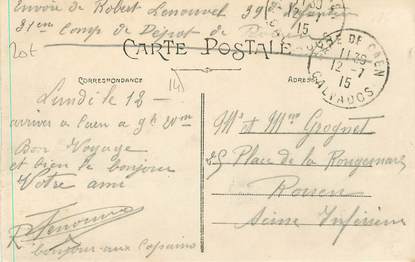 Envoie de Robert Lenouvel 39e
31eme Comp de Dépôt de
20t
CARTE POSTALE
CORRESPONDANCE
ADRESSE
GARE DE CAEN
11 30
12 -7
15
CALVADOS
14
Lundi le 12 -
arriver a Caen a 9h
Bon Voyage
et bien le bonjour
Votre ami
R Lenouvel
bonjour aux Copains
Mr et Mme Grognet
25 Place de la Rougemare
Rouen
Seine Inférieure